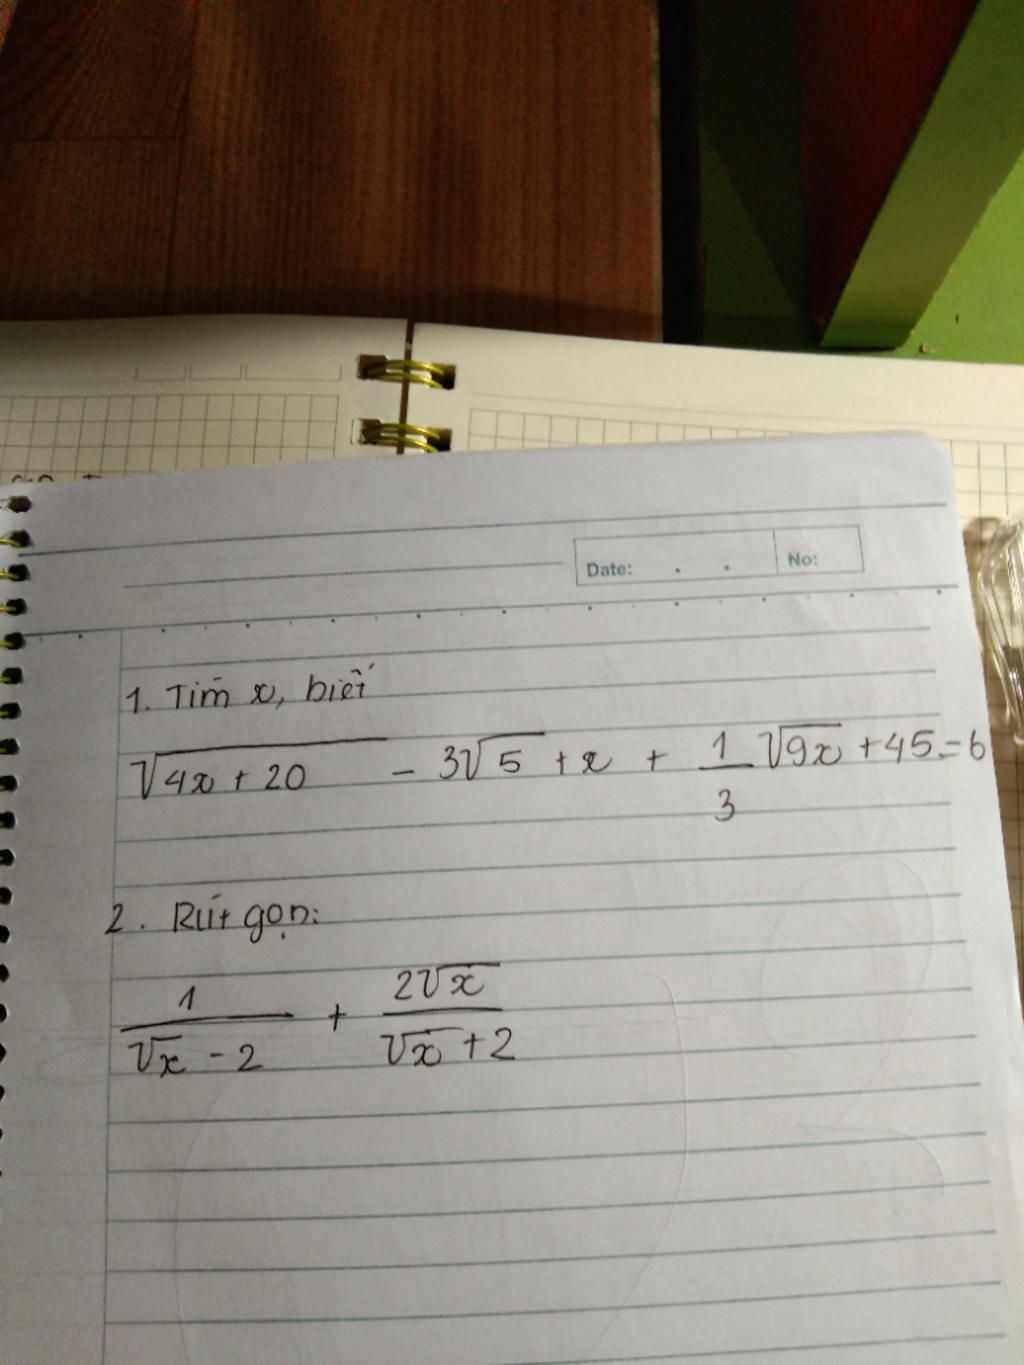 Date: . . No:
1. Tìm x, biết
√(4x + 20) - 3√5 + x + 1/3 √(9x) + 45 = 6
2. Rút gọn:
1/(√x - 2) + 2√x/(√x + 2)